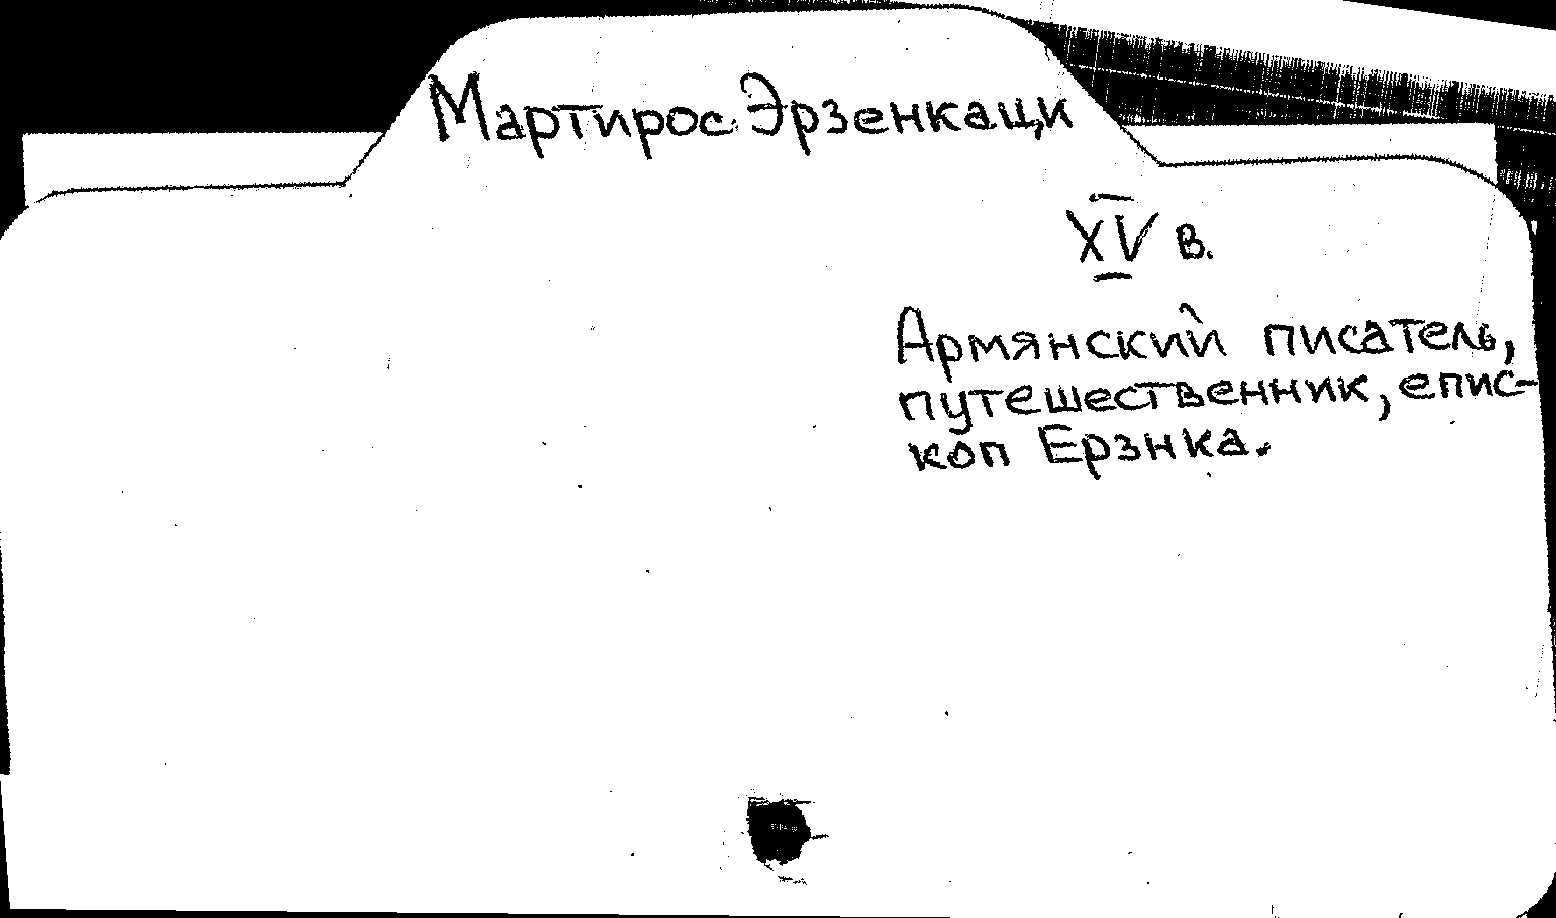 Мартирос Эрзенкаци
XV в.
Армянский писатель,
путешественник, епис-
коп Ерзнка.